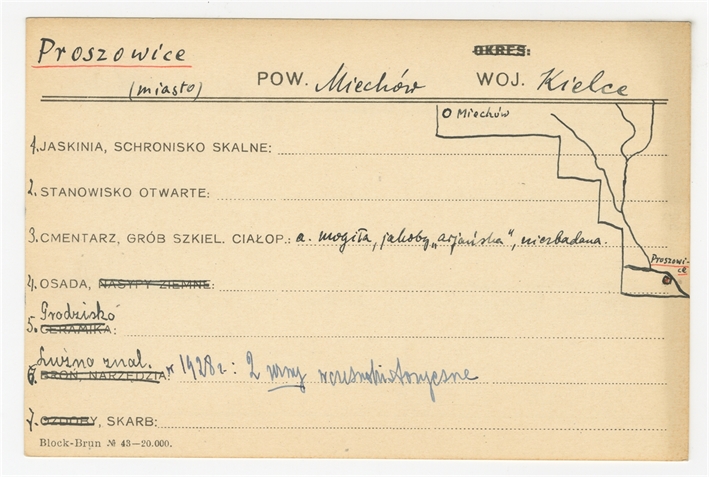 Proszowice
OKRES:
(miasto) POW. Miechów WOJ. Kielce
Miechów
1. JASKINIA, SCHRONISKO SKALNE:
2. STANOWISKO OTWARTE:
3. CMENTARZ, GRÓB SZKIEL. CIAŁOP.: a. mogiła, jakoby „arjańska", niezbadana.
Proszowi-
ce
4. OSADA, NASYPY ZIEMNE:
Grodzisko
5. CERAMIKA:
Luźno znal.
6. BROŃ, NARZĘDZIA: w 1928 r: 2 urny wczesnohistoryczne
7. OZDOBY, SKARB:
Block-Brun № 43—20.000.